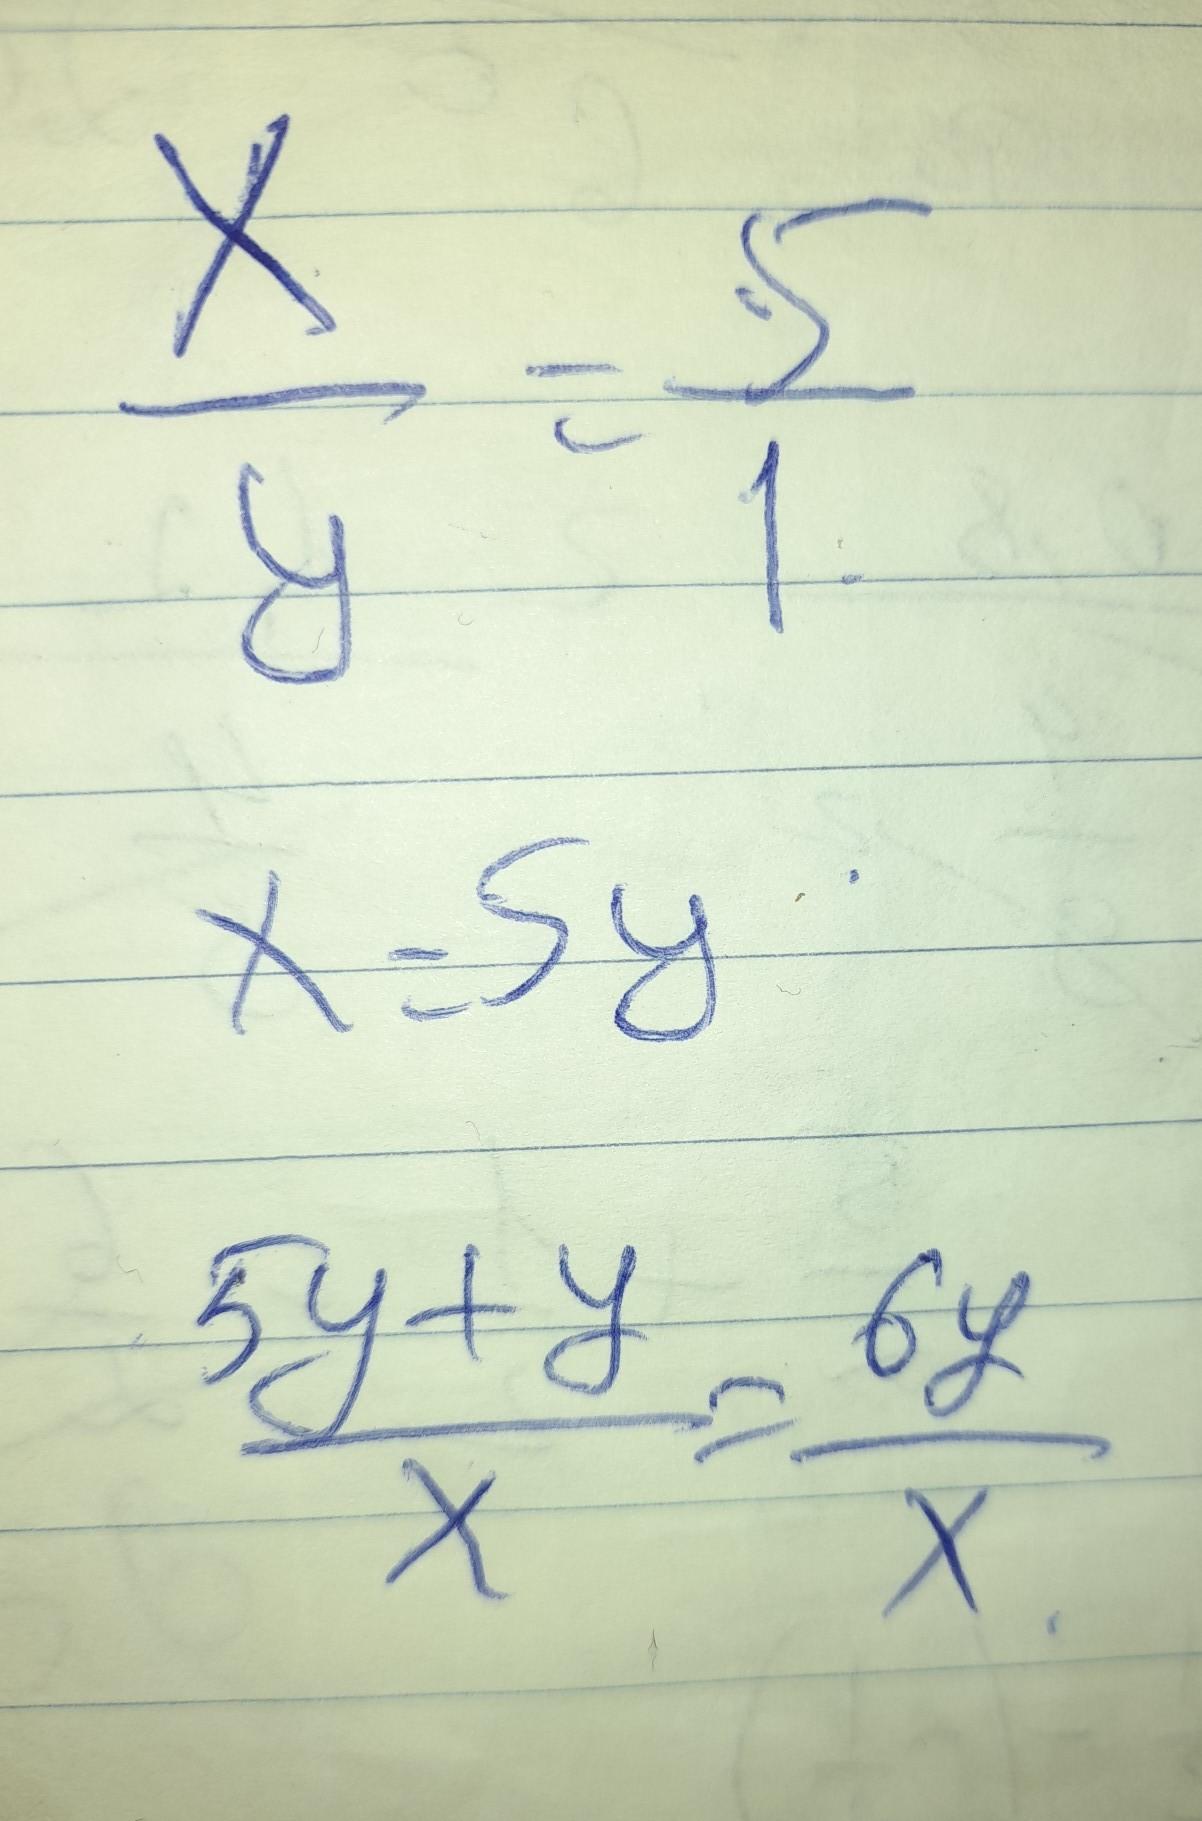 x/y = 5/1
x = 5y
5y + y / x = 6y / x